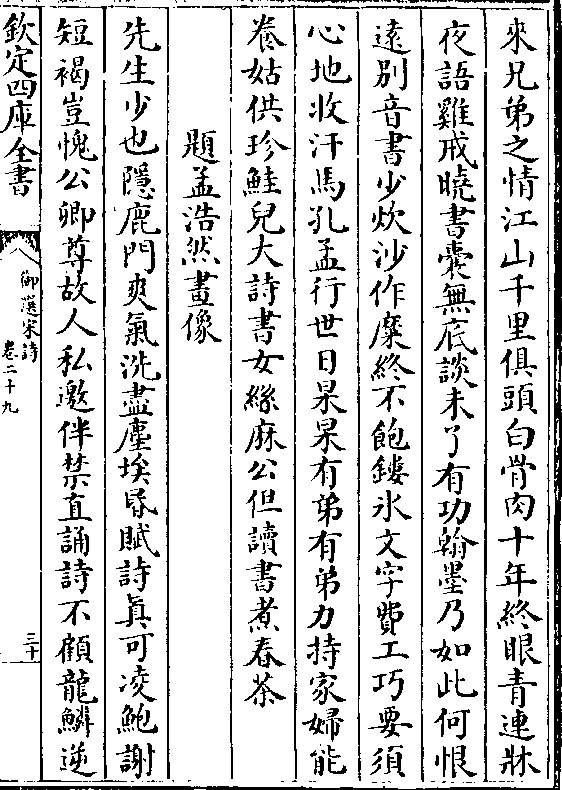 來兄弟之情江山千里俱頭白骨肉十年終眼青連牀
夜語雞戒曉書囊無底談未了有功翰墨乃如此何恨
遠別音書少炊沙作糜終不飽鏤冰文字費工巧要須
心地收汗馬孔孟行世日杲杲有弟有弟力持家婦能
養姑供珍鮭兒大詩書女絲麻公但讀書煮春茶
題孟浩然畫像
先生少也隱鹿門爽氣洗盡塵埃昏賦詩真可凌鮑謝
短褐豈愧公卿尊故人私邀伴禁直誦詩不顧龍鱗逆
欽定四庫全書
御選宋詩
卷二十九
三十